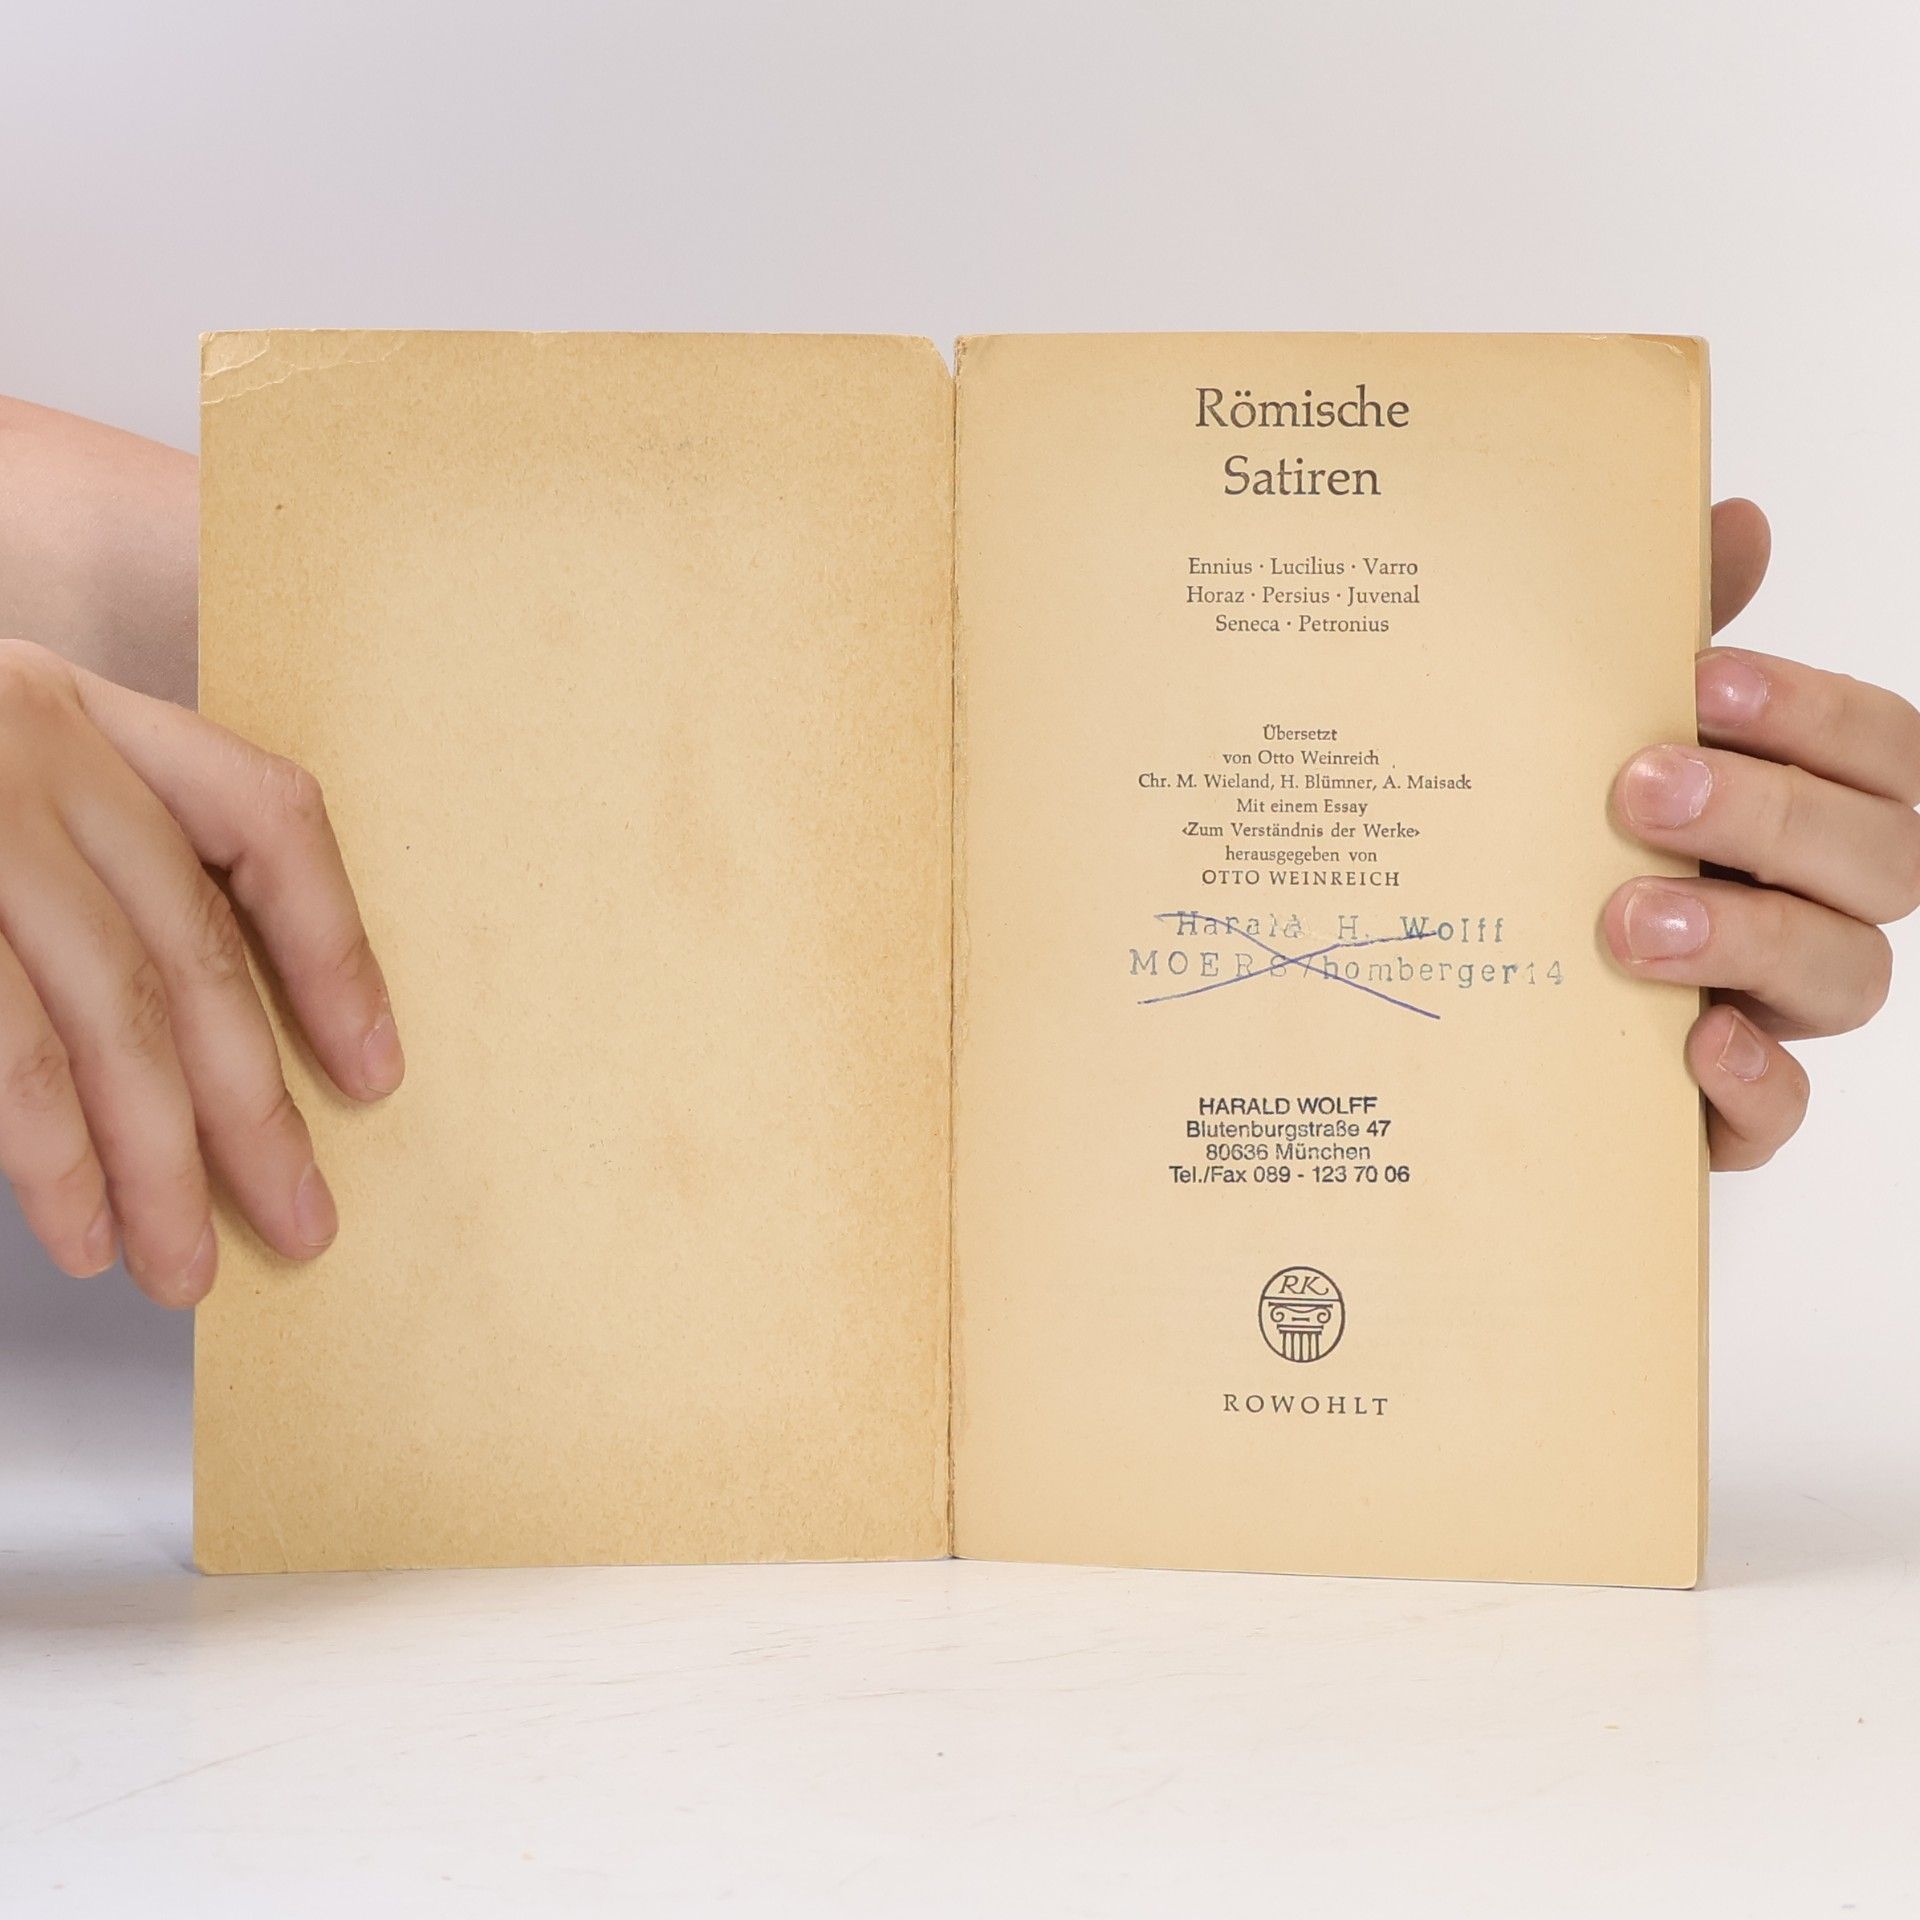 Römische
Satiren
Ennius · Lucilius · Varro
Horaz · Persius · Juvenal
Seneca · Petronius
Übersetzt
von Otto Weinreich
Chr. M. Wieland, H. Blümner, A. Maisack
Mit einem Essay
‹Zum Verständnis der Werke›
herausgegeben von
OTTO WEINREICH
Harald H. Wolff
MOERS/homberger14
HARALD WOLFF
Blutenburgstraße 47
80636 München
Tel./Fax 089 - 123 70 06
RK
ROWOHLT